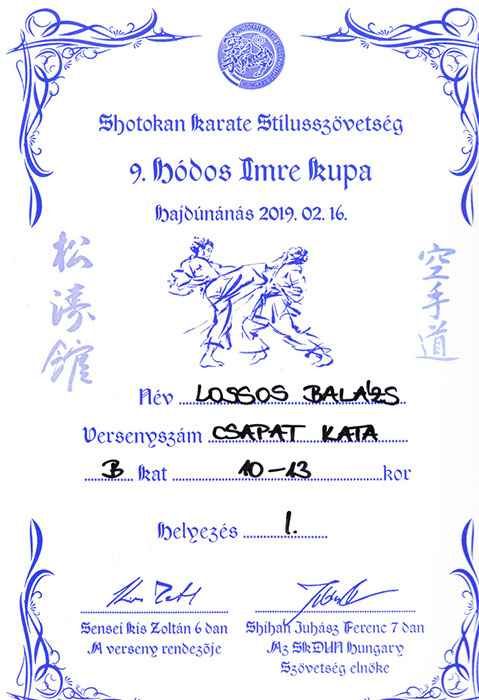 Shotokan Karate Stílusszövetség
9. Hódos Imre Kupa
Hajdúnánás 2019. 02. 16.
松濤館
空手道
Név LOSSOS BALÁZS
Versenyszám CSAPAT KATA
B kat 10-13 kor
Helyezés I.
Sensei Kis Zoltán 6 dan
A verseny rendezője
Shihan Juhász Ferenc 7 dan
Az SKDUN Hungary
Szövetség elnöke